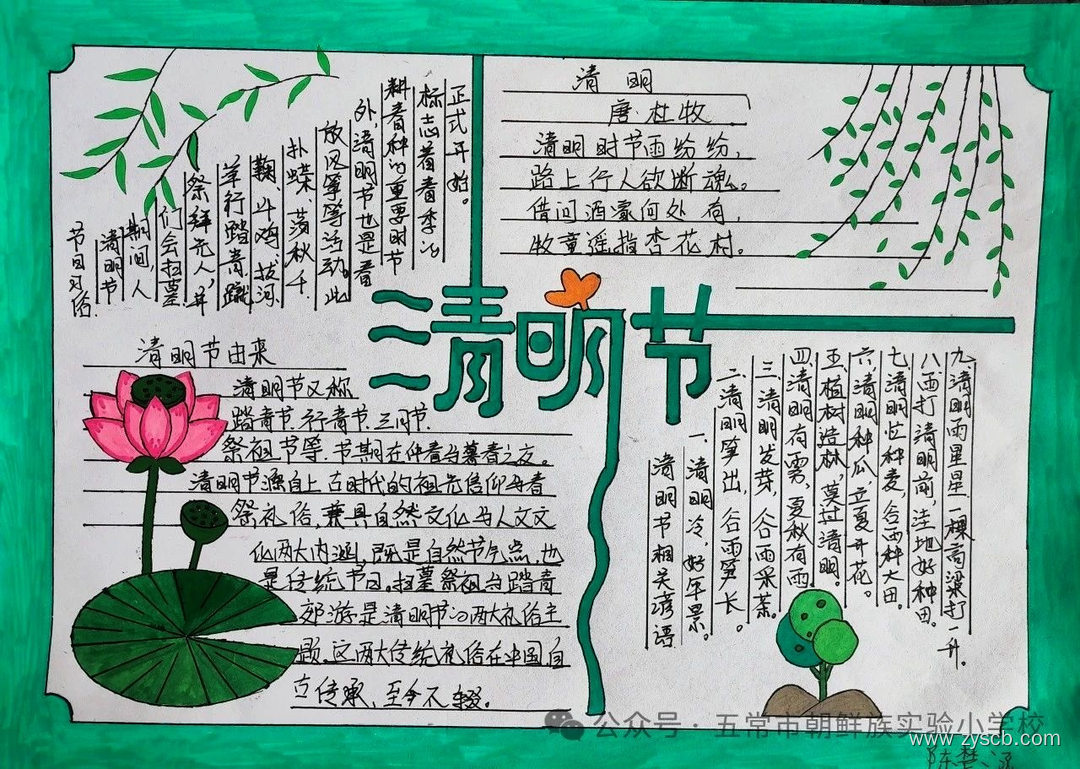 节日习俗
清明节
期间，人
们会扫墓
祭拜先人，并
举行踏青、蹴
鞠、斗鸡、拔河、
扑蝶、荡秋千、
放风筝等活动。此
外，清明节也是春
耕春种的重要时节
标志着春季的
正式开始。
清明
唐·杜牧
清明时节雨纷纷，
路上行人欲断魂。
借问酒家何处有，
牧童遥指杏花村。
清明节
清明节由来
清明节又称
踏青节、行青节、三月节、
祭祖节等，节期在仲春与暮春之交。
清明节源自上古时代的祖先信仰与春
祭礼俗，兼具自然文化与人文文
化两大内涵，既是自然节气点，也
是传统节日。扫墓祭祖与踏青
郊游是清明节的两大礼俗主
题。这两大传统礼俗在中国自
立传承，至今不辍。
清明节相关谚语
一、清明冷，好年景。
二、清明笋出，谷雨笋长。
三、清明发芽，谷雨采茶。
四清明有雾，夏秋有雨
五、植树造林，莫过清明。
六、清明种瓜，立夏开花。
七、清明忙种麦，谷雨种大田。
八、雨打清明前，洼地好种田。
九、清明雨星星，一棵高粱打一升。
公众号·五常市朝鲜族实验小学校
www.zyscb.com